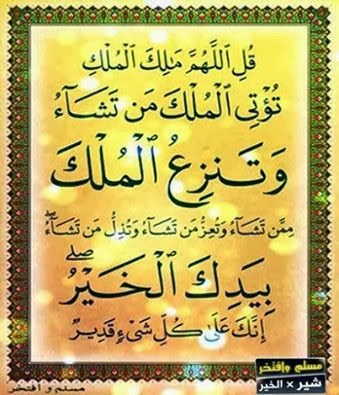 قُلِ ٱللَّهُمَّ مَٰلِكَ ٱلْمُلْكِ
تُؤْتِى ٱلْمُلْكَ مَن تَشَآءُ
وَتَنزِعُ ٱلْمُلْكَ
مِمَّن تَشَآءُ وَتُعِزُّ مَن تَشَآءُ وَتُذِلُّ مَن تَشَآءُ ۖ
بِيَدِكَ ٱلْخَيْرُ ۖ
إِنَّكَ عَلَىٰ كُلِّ شَىْءٍ قَدِيرٌ
مسلم وافتخر
شير × الخير
مسلم و افتخر